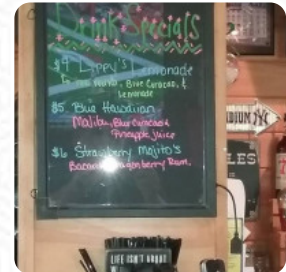 Drink Specials
$4 Lippy's Lemonade
Blue Curacao, &
Lemonade
$5 Blue Hawaiian
Malibu, Blue Curacao &
Pineapple Juice
$6 Strawberry Mojito's
Bacardi Dragonberry Rum,
LIFE ISN'T